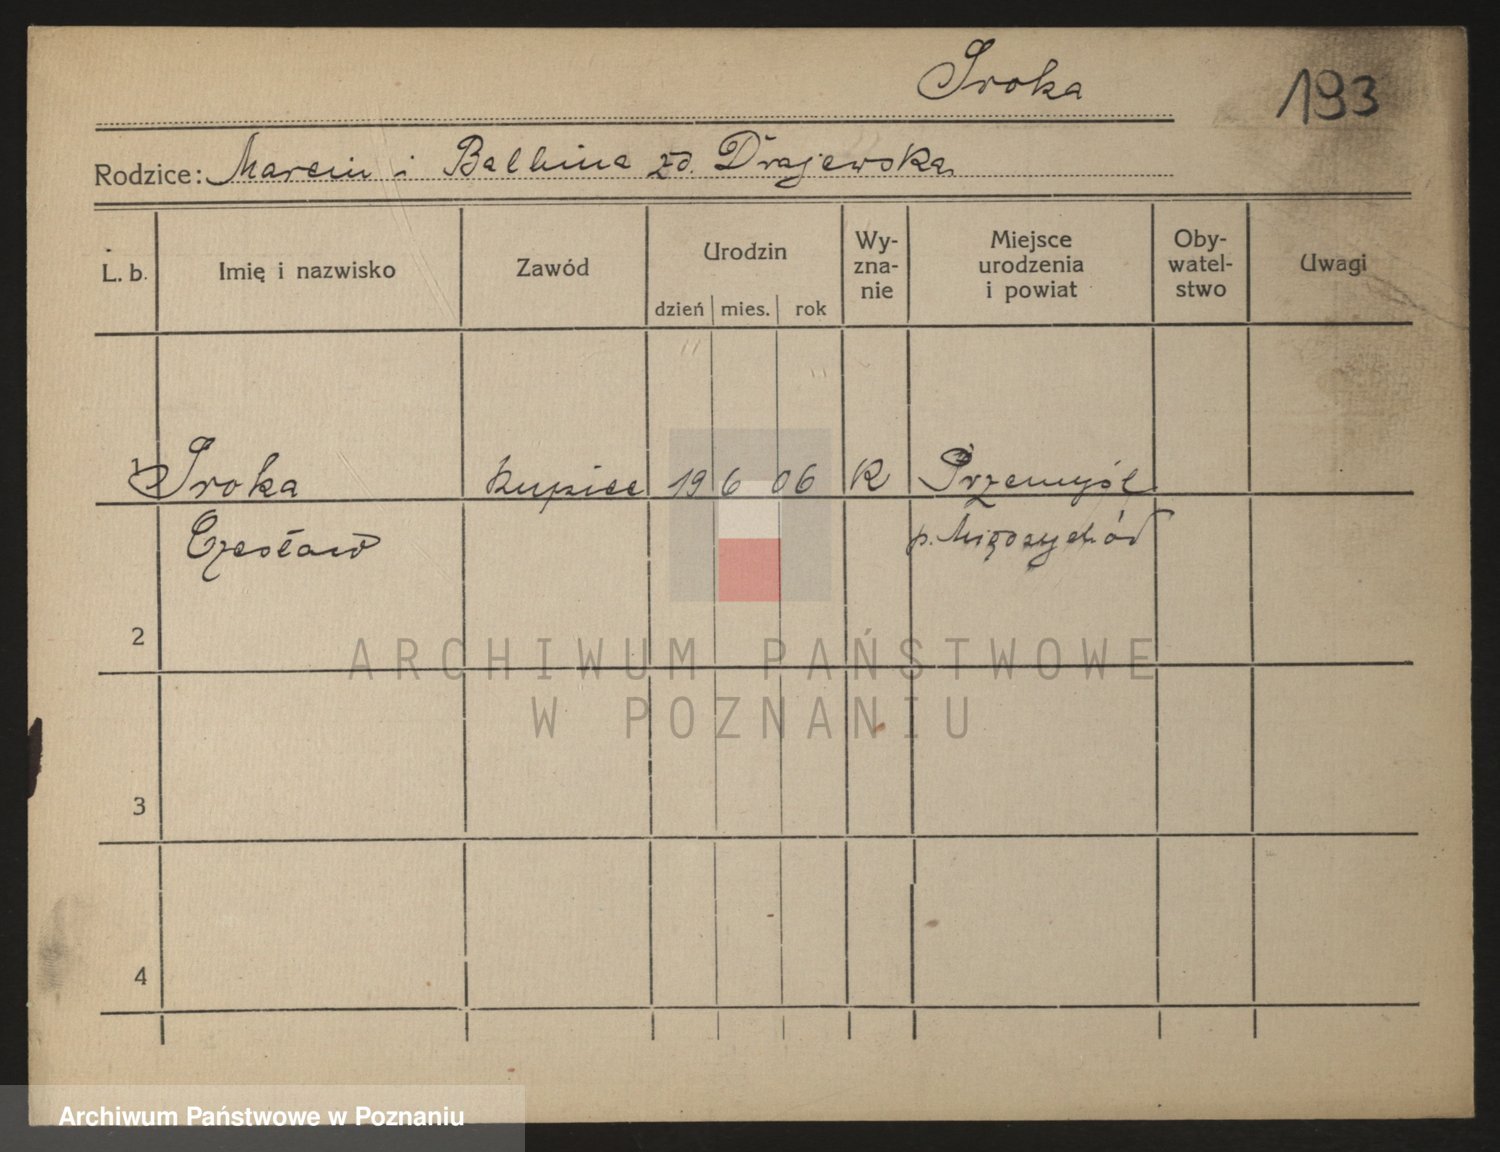 Sroka
193
Rodzice: Marcin i Balbina zd. Drajewska
L. b.
Imię i nazwisko
Zawód
Urodzin
dzień mies. rok
Wy-
zna-
nie
Miejsce
urodzenia
i powiat
Oby-
watel-
stwo
Uwagi
1 Sroka kupiec 19 6 06 K Przemyśl
Czesław p. Międzychód
2
3
4
ARCHIWUM PAŃSTWOWE
W POZNANIU
Archiwum Państwowe w Poznaniu